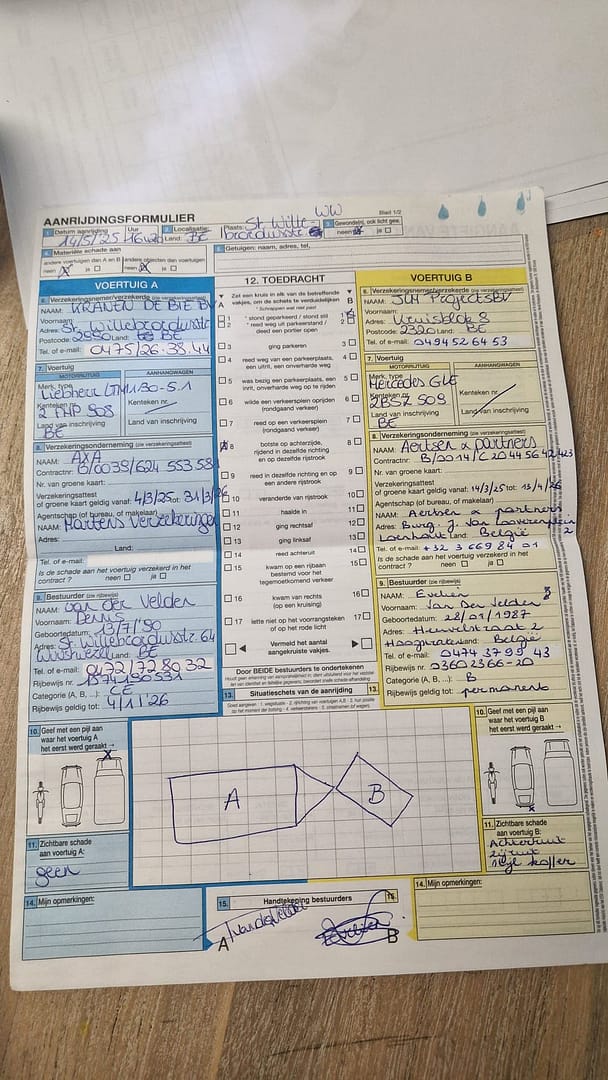 AANRIJDINGSFORMULIER
Blad 1/2
1. Datum aanrijding Uur
14/5/25 16u20
2. Localisatie: Plaats: St Wille WW
Land: BE brordusstr
3. Gewonde(n), ook licht gew.
neen ja
4. Materiële schade aan
andere voertuigen dan A en B andere objecten dan voertuigen
neen X ja neen X ja
5. Getuigen: naam, adres, tel.
VOERTUIG A
6. Verzekeringsnemer/verzekerde (zie verzekeringsattest)
NAAM: KRANEN DE BIE BV
Voornaam:
Adres: St. Willebrordusstr
Postcode: 2990 Land: BE
Tel. of e-mail: 0475/26.38.44
7. Voertuig
MOTORRIJTUIG AANHANGWAGEN
Merk, type
Liebherr LTM1130-5.1
Kenteken nr. Kenteken nr.
Land van inschrijving Land van inschrijving
BE
8. Verzekeringsonderneming (zie verzekeringsattest)
NAAM: AXA
Contractnr:
Nr. van groene kaart:
Verzekeringsattest
of groene kaart geldig vanaf: 4/3/25 tot: 31/3/26
Agentschap (of bureau, of makelaar)
NAAM: Martens Verzekeringen
Adres:
Land:
Tel. of e-mail:
Is de schade aan het voertuig verzekerd in het
contract ? neen ja
9. Bestuurder (zie rijbewijs)
NAAM: van der Velden
Voornaam: Denis
Geboortedatum: 13/7/90
Adres: St Willebrordusstr. 64
Wuustwezel Land: BE
Tel. of e-mail: 0472/72 80 32
Rijbewijs nr.
Categorie (A, B, ...): CE
Rijbewijs geldig tot: 4/11/26
10. Geef met een pijl aan
waar het voertuig A
het eerst werd geraakt →
X
11. Zichtbare schade
aan voertuig A:
geen
14. Mijn opmerkingen:
12. TOEDRACHT
A Zet een kruis in elk van de betreffende B
vakjes, om de schets te verduidelijken
* Schrappen wat niet past
1 * stond geparkeerd / stond stil 1
2 * reed weg uit parkeerstand / 2
deed een portier open
3 ging parkeren 3
4 reed weg van een parkeerplaats, 4
een uitrit, een onverharde weg
5 was bezig een parkeerplaats, een 5
inrit, onverharde weg op te rijden
6 wilde een verkeersplein oprijden 6
(rondgaand verkeer)
7 reed op een verkeersplein 7
(rondgaand verkeer)
8 botste op achterzijde, 8
rijdend in dezelfde richting
en op dezelfde rijstrook
9 reed in dezelfde richting en op 9
een andere rijstrook
10 veranderde van rijstrook 10
11 haalde in 11
12 ging rechtsaf 12
13 ging linksaf 13
14 reed achteruit 14
15 kwam op een rijbaan 15
bestemd voor het
tegemoetkomend verkeer
16 kwam van rechts 16
(op een kruising)
17 lette niet op het voorrangsteken 17
of op het rode licht
Vermeld het aantal
aangekruiste vakjes.
Door BEIDE bestuurders te ondertekenen
13. Situatieschets van de aanrijding 13.
A
B
15. Handtekening bestuurders 15.
A B
VOERTUIG B
6. Verzekeringsnemer/verzekerde (zie verzekeringsattest)
NAAM: JLM Projects BV
Voornaam:
Adres: Kruisblok 8
Postcode: 2320 Land: BE
Tel. of e-mail: 0494526453
7. Voertuig
MOTORRIJTUIG AANHANGWAGEN
Merk, type
Mercedes GLE
Kenteken nr. Kenteken nr.
Land van inschrijving Land van inschrijving
BE
8. Verzekeringsonderneming (zie verzekeringsattest)
NAAM: Aertsen & partners
Contractnr:
Nr. van groene kaart:
Verzekeringsattest
of groene kaart geldig vanaf: 14/3/25 tot: 13/4/26
Agentschap (of bureau, of makelaar)
NAAM: Aertsen & partners
Adres: Burg. J. Van
Loenhout Land: België 2
Tel. of e-mail: +32 3 669 84 01
Is de schade aan het voertuig verzekerd in het
contract ? neen ja
9. Bestuurder (zie rijbewijs)
NAAM: Evelien
Voornaam: Van Der Velden
Geboortedatum: 28/01/1987
Adres: Heuvelstraat 2
Hoogstraten Land: België
Tel. of e-mail: 0474 37 99 43
Rijbewijs nr. 03602366-20
Categorie (A, B, ...): B
Rijbewijs geldig tot: permanent
10. Geef met een pijl aan
waar het voertuig B
het eerst werd geraakt →
x
11. Zichtbare schade
aan voertuig B:
Achterruit
zijruit
koffer
14. Mijn opmerkingen: